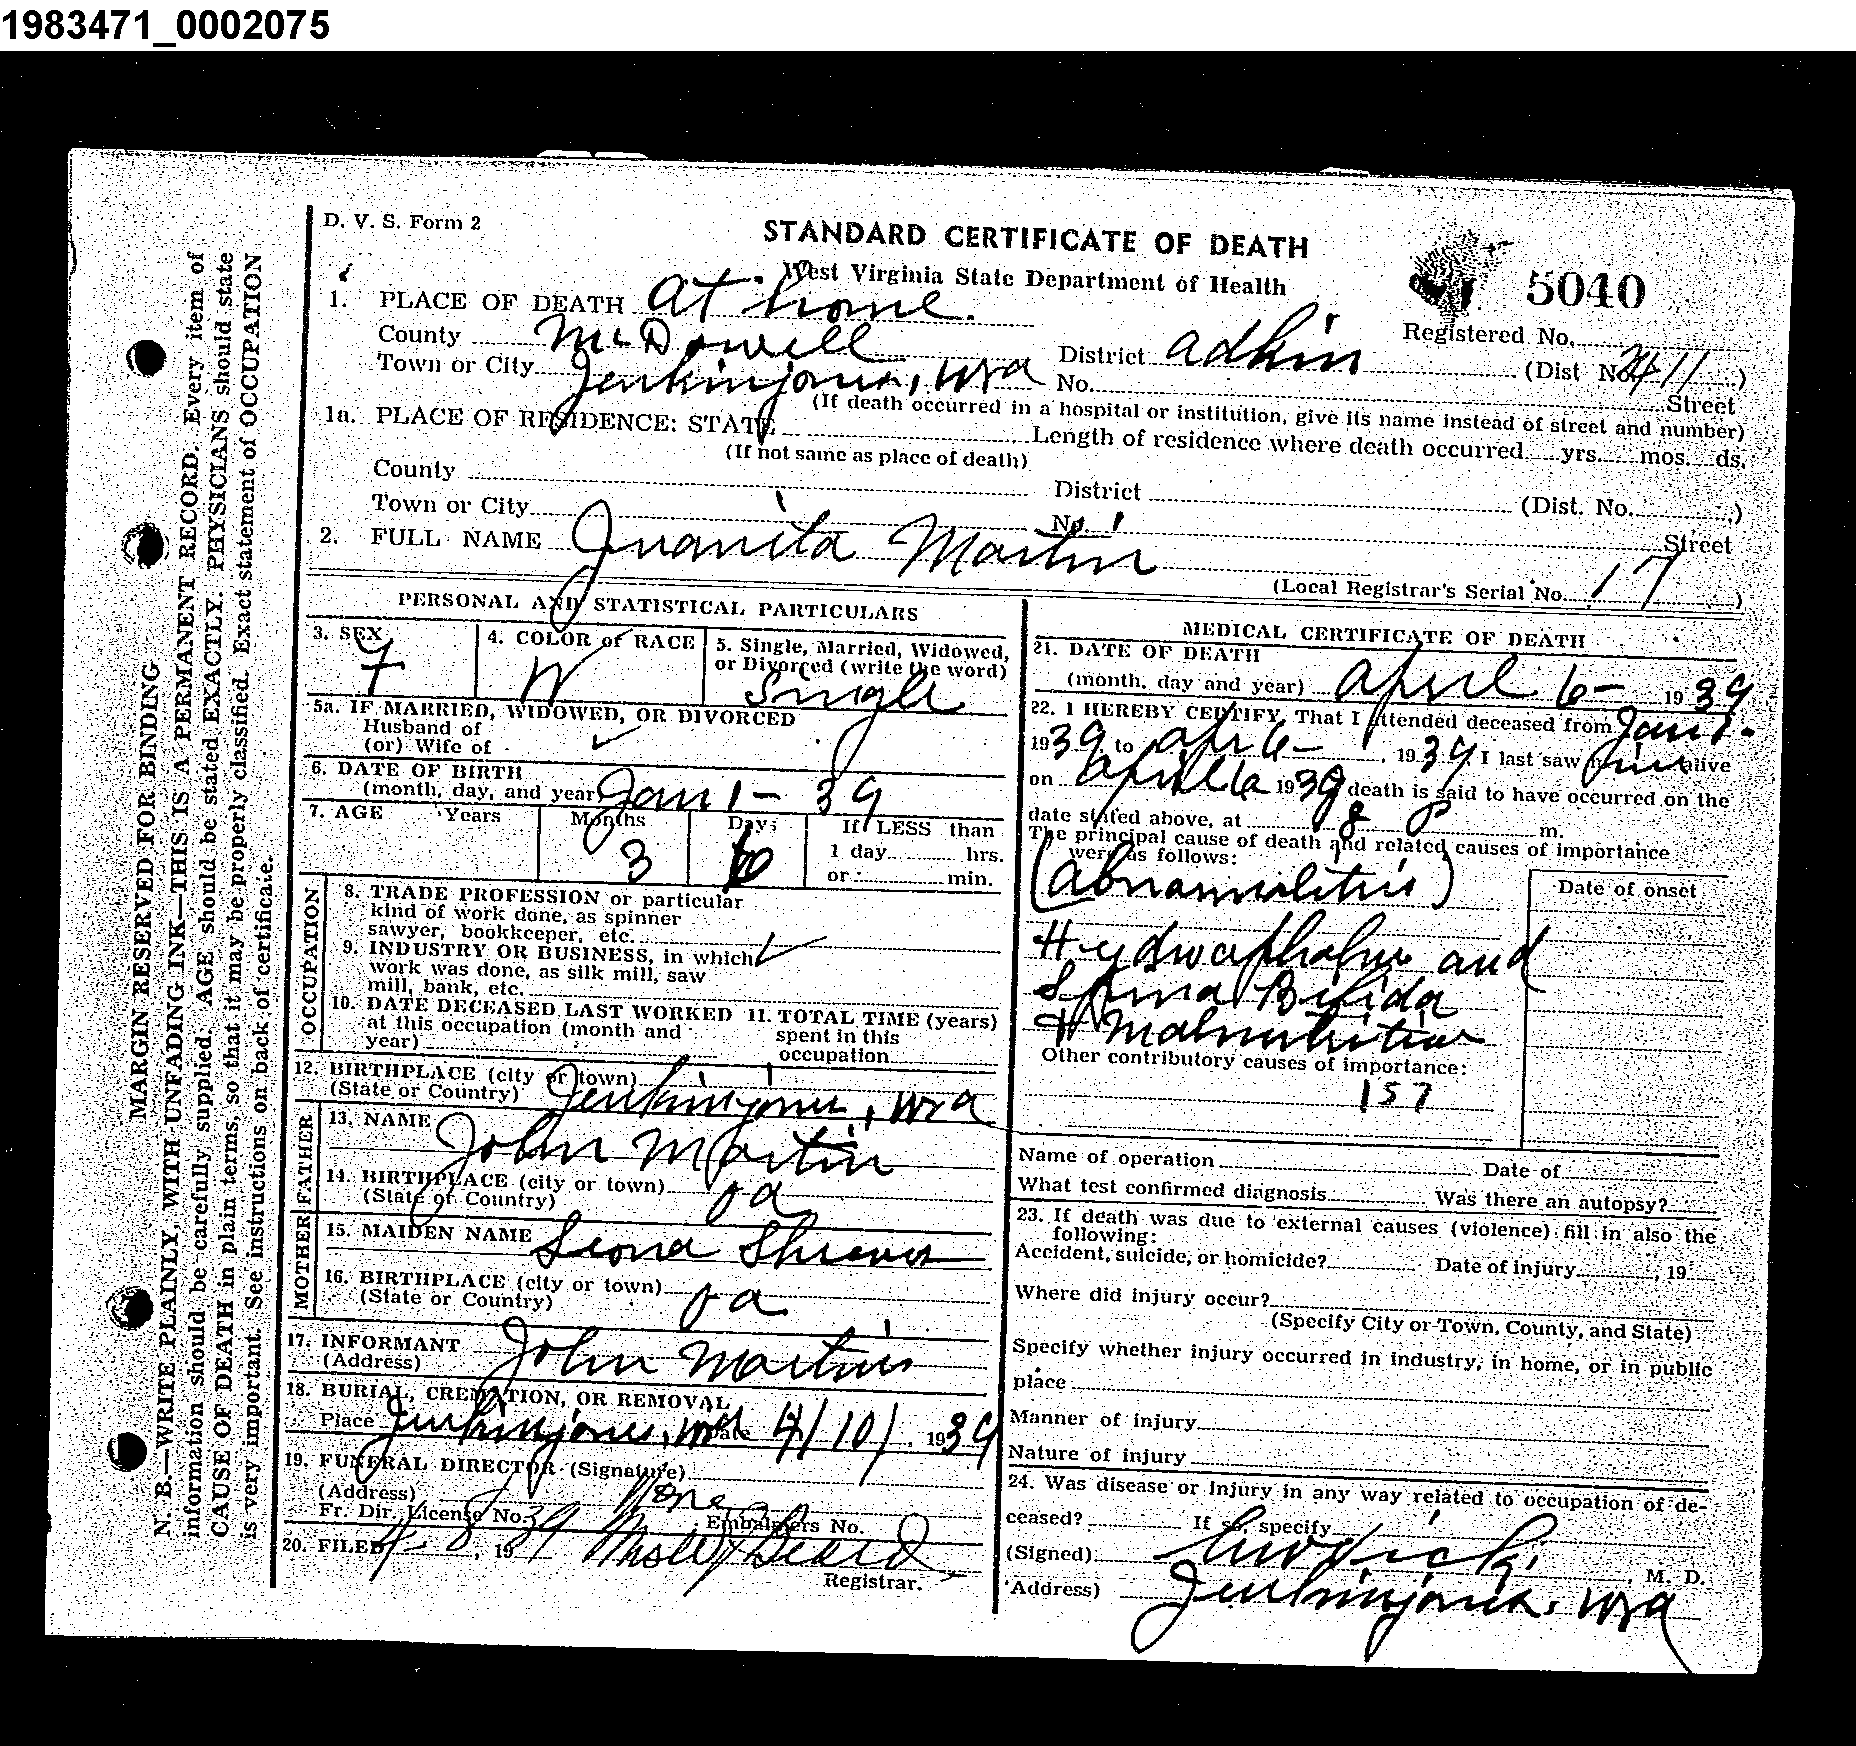 1983471_0002075
D. V. S. Form 2
STANDARD CERTIFICATE OF DEATH
West Virginia State Department of Health
5040
1. PLACE OF DEATH at home.
Registered No.
County McDowell District Adkin (Dist No. 411)
Town or City Jenkinjones, Wva No. Street
(If death occurred in a hospital or institution, give its name instead of street and number)
1a. PLACE OF RESIDENCE: STATE Length of residence where death occurred yrs. mos. ds.
(If not same as place of death)
County District (Dist. No. )
Town or City No. Street
2. FULL NAME Juanita Martin
(Local Registrar's Serial No. 17 )
PERSONAL AND STATISTICAL PARTICULARS
3. SEX F
4. COLOR or RACE W
5. Single, Married, Widowed, or Divorced (write the word) Single
5a. IF MARRIED, WIDOWED, OR DIVORCED
Husband of
(or) Wife of
6. DATE OF BIRTH
(month, day, and year) Jan 1 - 39
7. AGE Years Months Days If LESS than
1 day hrs.
or min.
3 6
OCCUPATION
8. TRADE PROFESSION or particular
kind of work done, as spinner
sawyer, bookkeeper, etc.
9. INDUSTRY OR BUSINESS, in which
work was done, as silk mill, saw
mill, bank, etc.
10. DATE DECEASED LAST WORKED
at this occupation (month and
year)
11. TOTAL TIME (years)
spent in this
occupation
12. BIRTHPLACE (city or town)
(State or Country) Jenkinjones, Wva
FATHER
13. NAME John Martin
14. BIRTHPLACE (city or town)
(State or Country) Va
MOTHER
15. MAIDEN NAME Leona
16. BIRTHPLACE (city or town)
(State or Country) Va
17. INFORMANT John Martin
(Address)
18. BURIAL, CREMATION, OR REMOVAL
Place Jenkinjones, Wva Date 4/10/, 1939
19. FUNERAL DIRECTOR (Signature)
(Address) None
Fr. Dir. License No. Embalmers No.
20. FILED 4-8, 1939 Beard
Registrar.
MEDICAL CERTIFICATE OF DEATH
21. DATE OF DEATH
(month, day and year) April 6 - 1939
22. I HEREBY CERTIFY, That I attended deceased from Jan 1 -
1939 to Apr 6 -, 1939 I last saw him alive
on April 6 1939 death is said to have occurred on the
date stated above, at 8 P m.
The principal cause of death and related causes of importance
were as follows:
Date of onset
(Abnormalities)
Hydrocephalus and
Spina Bifida
Malnutrition
Other contributory causes of importance:
157
Name of operation Date of
What test confirmed diagnosis Was there an autopsy?
23. If death was due to external causes (violence) fill in also the
following:
Accident, suicide, or homicide? Date of injury , 19
Where did injury occur?
(Specify City or Town, County, and State)
Specify whether injury occurred in industry, in home, or in public
place
Manner of injury
Nature of injury
24. Was disease or injury in any way related to occupation of de-
ceased? If so, specify
(Signed) , M. D.
Address) Jenkinjones, Wva
MARGIN RESERVED FOR BINDING
N. B.—WRITE PLAINLY, WITH UNFADING INK—THIS IS A PERMANENT RECORD. Every item of
information should be carefully supplied. AGE should be stated EXACTLY. PHYSICIANS should state
CAUSE OF DEATH in plain terms, so that it may be properly classified. Exact statement of OCCUPATION
is very important. See instructions on back of certificate.